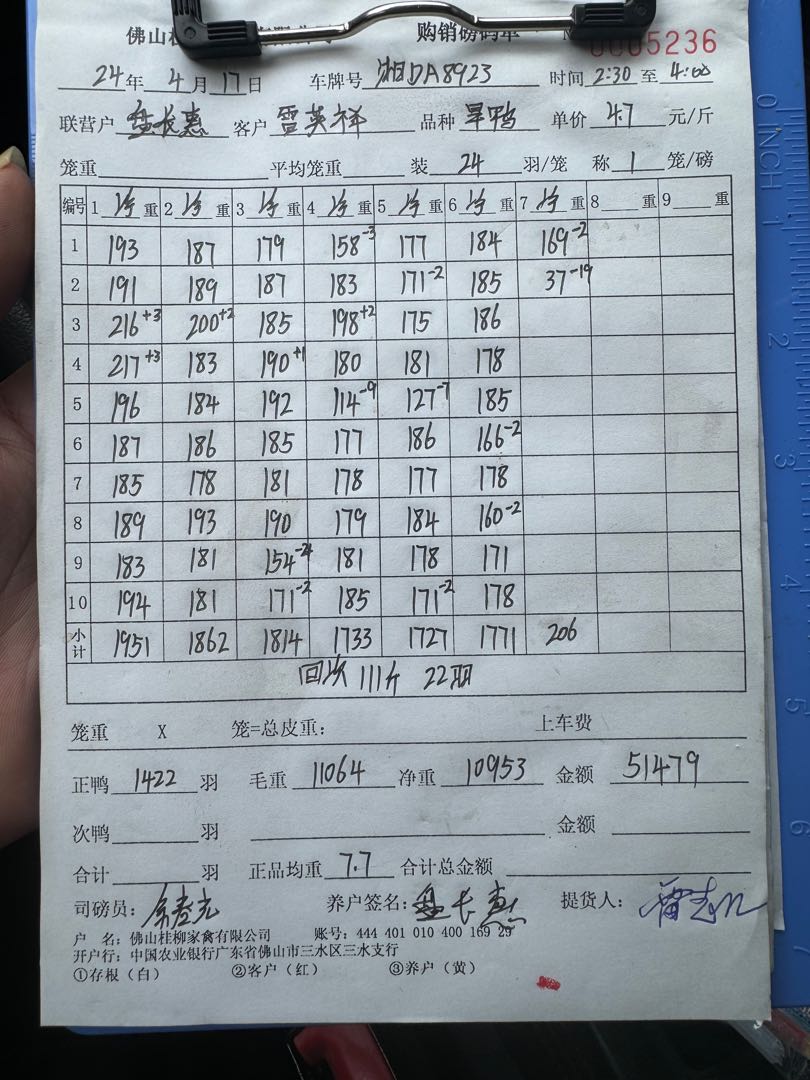 佛山桂 购销磅码单 № 0005236
24年 4月 17日 车牌号 湘DA8923 时间 2:30 至 4:00
联营户 盘长惠 客户 雷英祥 品种 旱鸭 单价 4.7 元/斤
笼重 平均笼重 装 24 羽/笼 称 1 笼/磅
编号 1 净 重 2 净 重 3 净 重 4 净 重 5 净 重 6 净 重 7 净 重 8 重 9 重
1 193 187 179 158-3 177 184 169-2
2 191 189 187 183 171-2 185 37-19
3 216+3 200+2 185 198+2 175 186
4 217+3 183 190+1 180 181 178
5 196 184 192 114-9 127-7 185
6 187 186 185 177 186 166-2
7 185 178 181 178 177 178
8 189 193 190 179 184 160-2
9 183 181 154-24 181 178 171
10 194 181 171-2 185 171-2 178
小计 1951 1862 1814 1733 1727 1771 206
回次 111斤 22羽
笼重 X 笼=总皮重： 上车费
正鸭 1422 羽 毛重 11064 净重 10953 金额 51479
次鸭 羽 金额
合计 羽 正品均重 7.7 合计总金额
司磅员： 养户签名：盘长惠 提货人：
户 名：佛山桂柳家禽有限公司 账号：444 401 010 400 169 29
开户行：中国农业银行广东省佛山市三水区三水支行
①存根（白） ②客户（红） ③养户（黄）
0 INCH 1
2
3
5
6
7